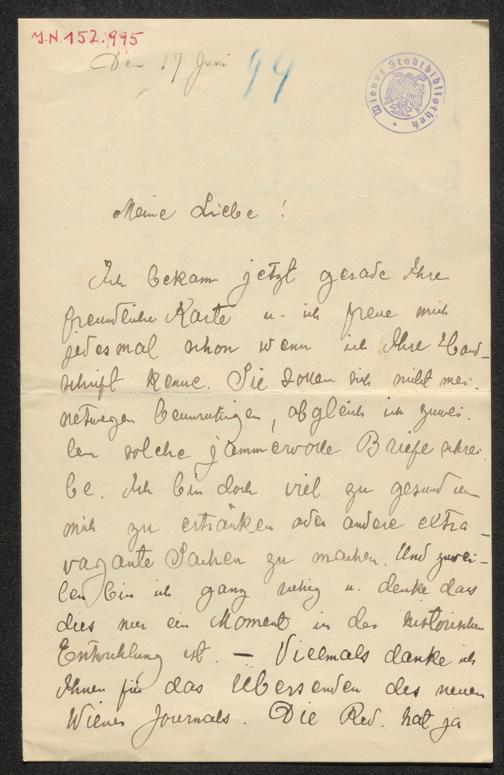 J.N. 152.995
Den 17 Juni 94
Wiener Stadtbibliothek
Meine Liebe!
Ich bekam jetzt gerade Ihre
freundliche Karte u. ich freue mich
jedesmal schon wenn ich Ihre Hand-
schrift kenne. Sie sollen sich nicht mei-
netwegen beunruhigen, obgleich ich zuwei-
len solche jammervolle Briefe schrei-
be. Ich bin doch viel zu gesund um
mich zu ertränken oder andere extra-
vagante Sachen zu machen. Und zuwei-
len bin ich ganz ruhig u. denke das
dies nur ein Moment in der historischen
Entwicklung ist. — Vielmals danke ich
Ihnen für das Übersenden des neuen
Wiener Journals. Die Red. hat ja